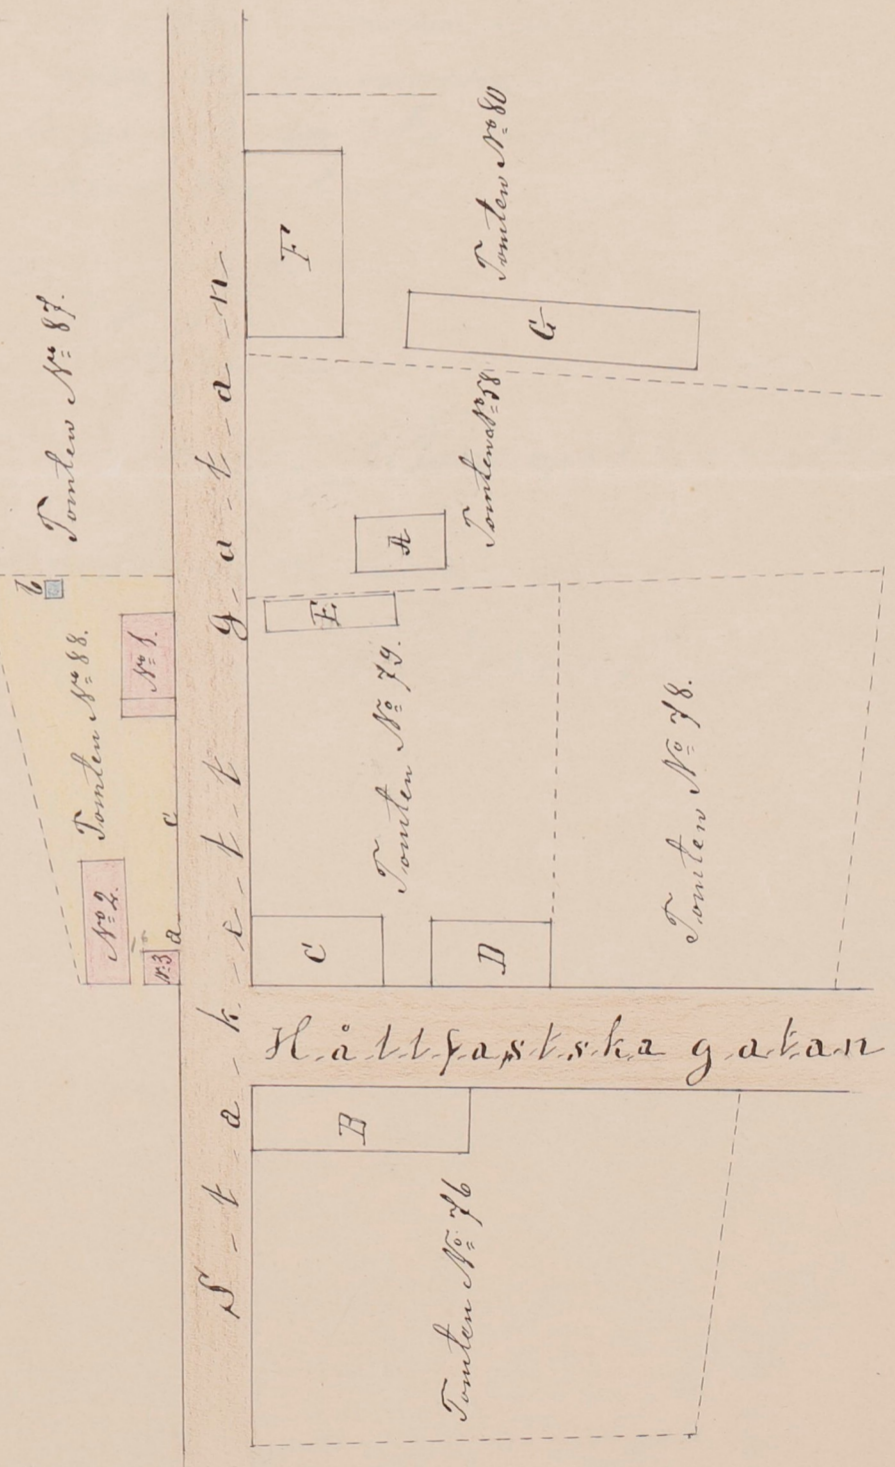 Tomten No 87.
b
Tomten No 88.
No 1.
No 2.
No 3
a
c
S-t-a-k-e-t-t-g-a-t-a-n
F
Tomten No 80
G
Tomten No 58
A
E
Tomten No 79.
C
D
Tomten No 78.
Håttfastska gatan
B
Tomten No 76